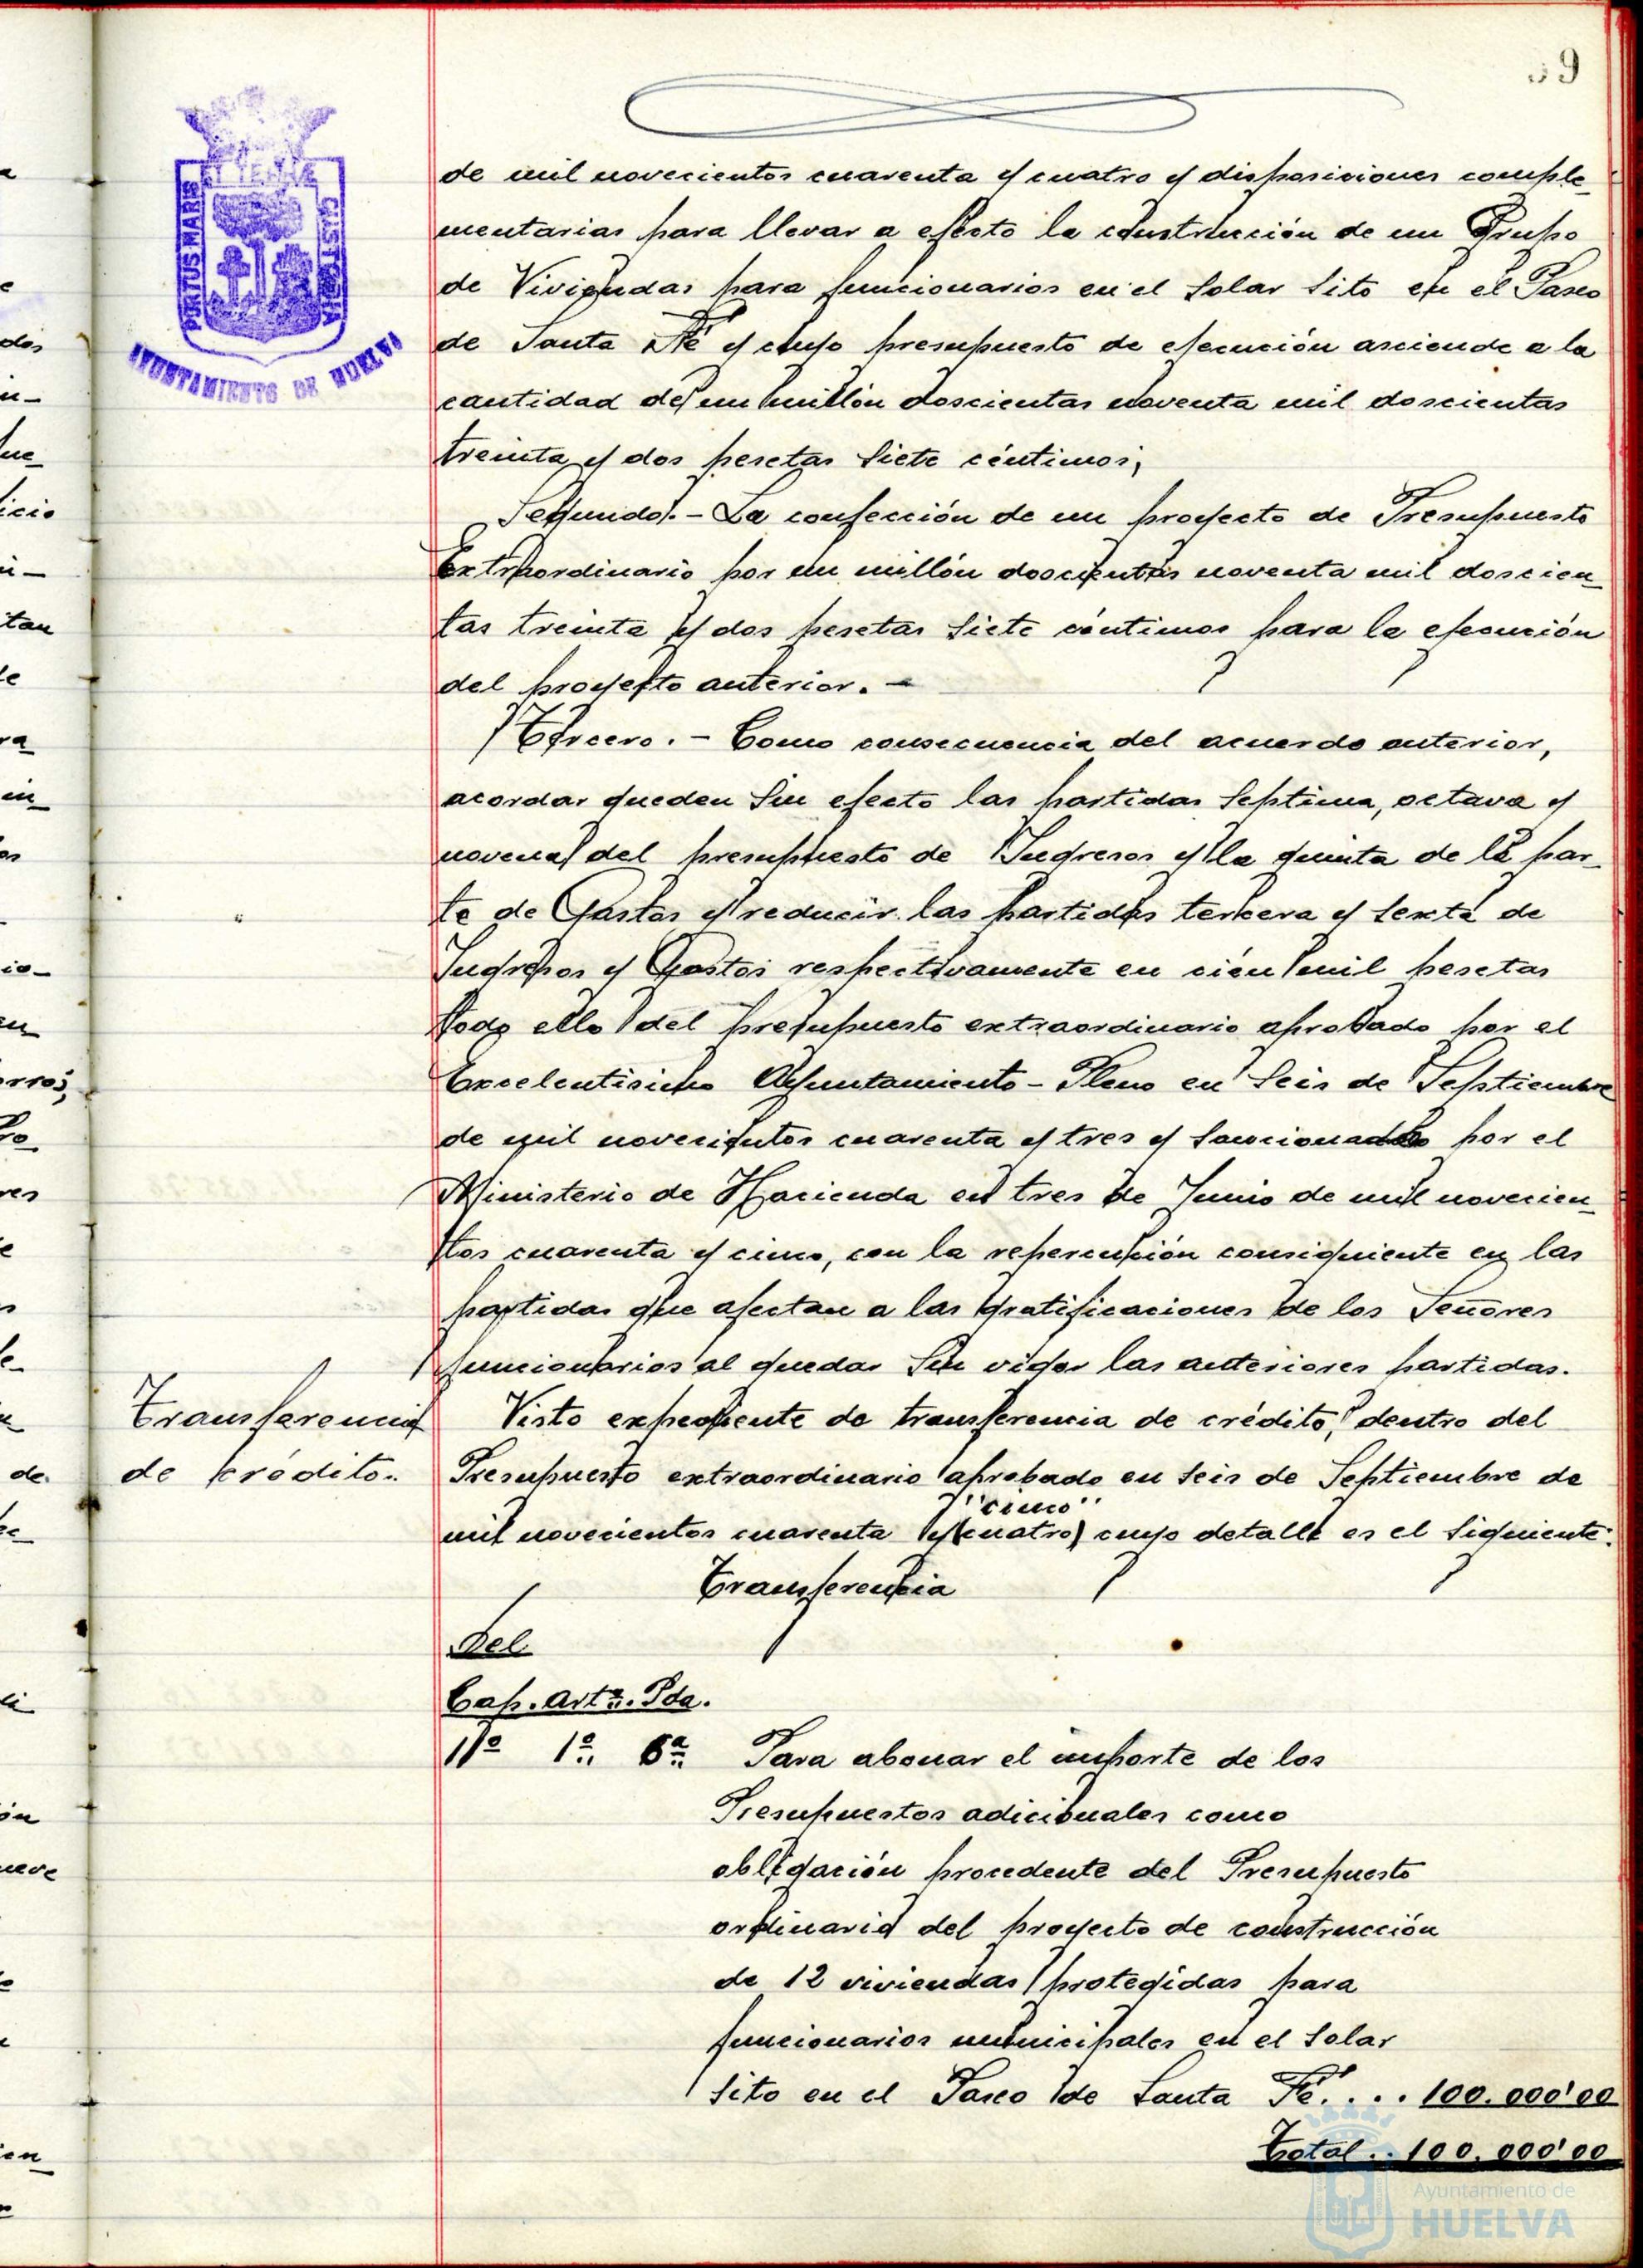 59
PORTUS MARIS
ET TERRÆ
CUSTODIA
AYUNTAMIENTO DE HUELVA
de mil novecientos cuarenta y cuatro y disposiciones comple-
mentarias para llevar a efecto la construcción de un Grupo
de Viviendas para funcionarios en el Solar Sito en el Paseo
de Santa Fé y cuyo presupuesto de ejecución asciende a la
cantidad de un millón doscientas noventa mil doscientas
treinta y dos pesetas Siete céntimos;
Segundo.- La confección de un proyecto de Presupuesto
Extraordinario por un millón doscientas noventa mil doscien-
tas treinta y dos pesetas Siete céntimos para la ejecución
del proyecto anterior. -
Tercero. - Como consecuencia del acuerdo anterior,
acordar queden Sin efecto las partidas Septima, octava y
novena del presupuesto de Ingresos y la quinta de la par-
te de Gastos y reducir las partidas tercera y Sexta de
Ingresos y Gastos respectivamente en cien mil pesetas
todo ello del presupuesto extraordinario aprobado por el
Excelentisimo Ayuntamiento-Pleno en Seis de Septiembre
de mil novecientos cuarenta y tres y Sancionado por el
Ministerio de Hacienda en tres de Junio de mil novecien-
tos cuarenta y cinco, con la repercusión consiguiente en las
partidas que afectan a las gratificaciones de los Señores
funcionarios al quedar Sin vigor las anteriores partidas.
Transferencia
de crédito.
Visto expediente de transferencia de crédito, dentro del
Presupuesto extraordinario aprobado en Seis de Septiembre de
"cinco"
mil novecientos cuarenta y (cuatro) cuyo detalle es el Siguiente:
Transferencia
Del
Cap. Artº. Pda.
11º 1º. 6ª. Para abonar el importe de los
Presupuestos adicionales como
obligación procedente del Presupuesto
ordinario del proyecto de construcción
de 12 viviendas protegidas para
funcionarios municipales en el Solar
Sito en el Paseo de Santa Fé. . . . 100.000'00
Total . . 100.000'00
Ayuntamiento de
HUELVA